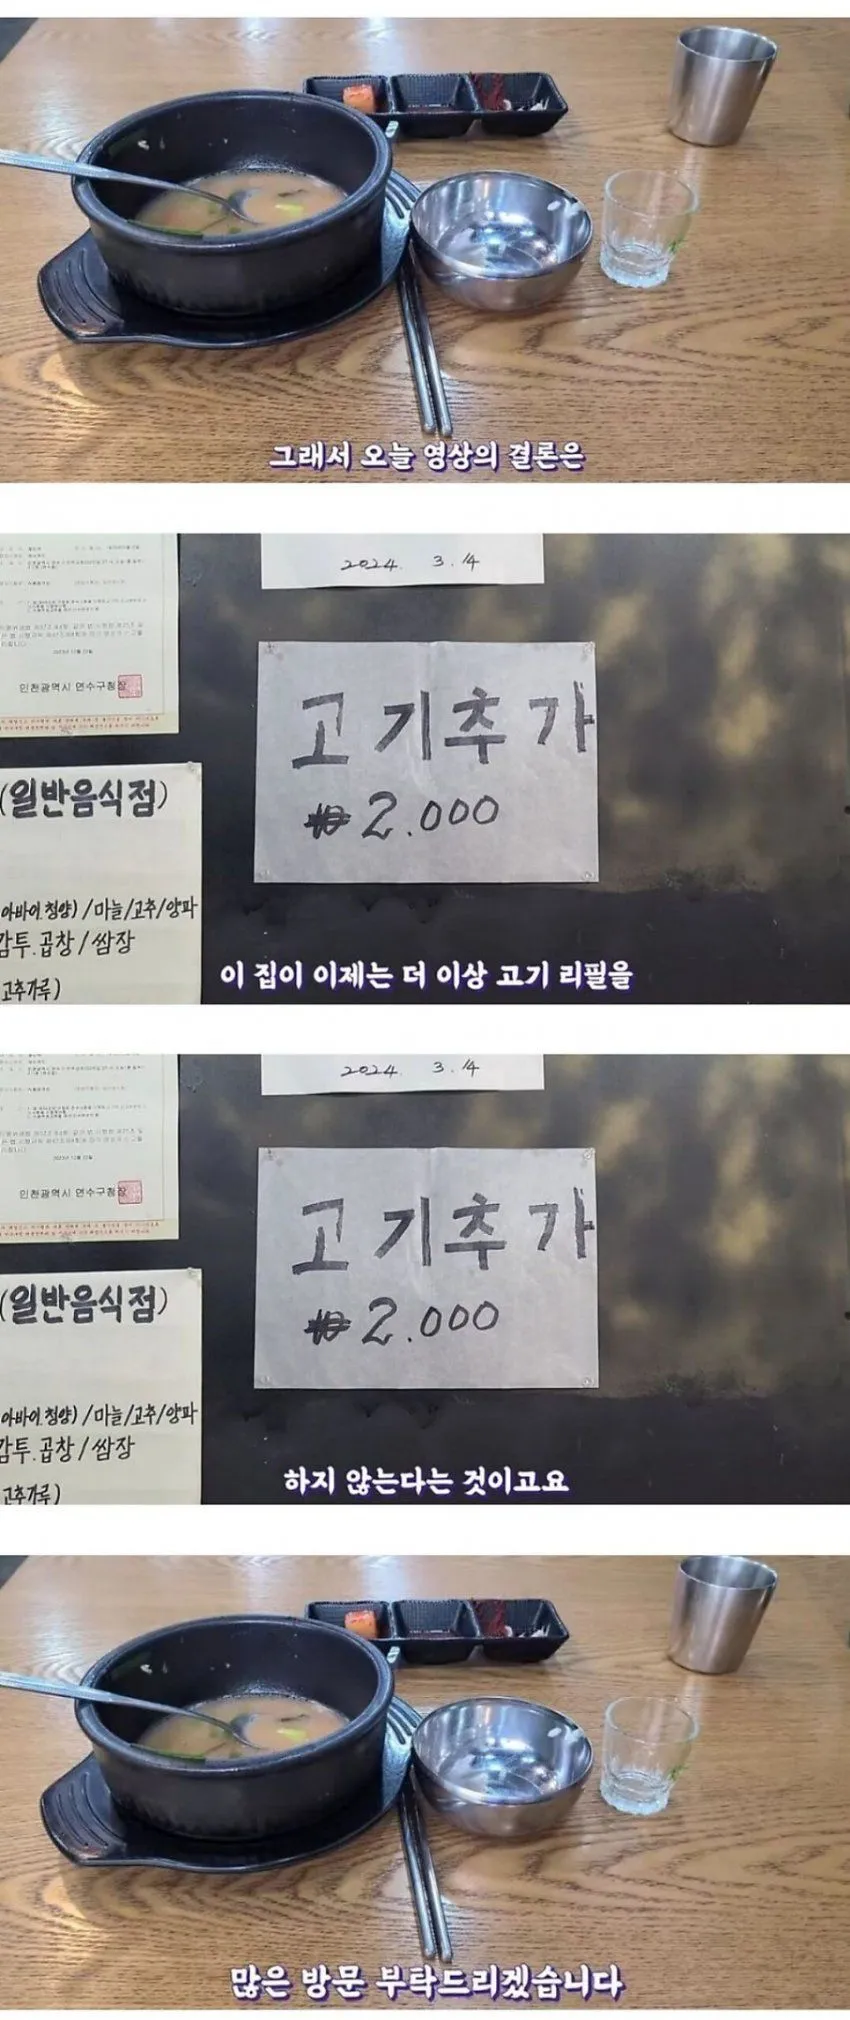 그래서 오늘 영상의 결론은
2024. 3. 14
인천광역시 연수구청장
고기추가
₩2.000
(일반음식점)
아바이.청양)/마늘/고추/양파
감투.곱창/쌈장
고추가루)
이 집이 이제는 더 이상 고기 리필을
2024. 3. 14
인천광역시 연수구청장
고기추가
₩2.000
(일반음식점)
아바이.청양)/마늘/고추/양파
감투.곱창/쌈장
고추가루)
하지 않는다는 것이고요
많은 방문 부탁드리겠습니다